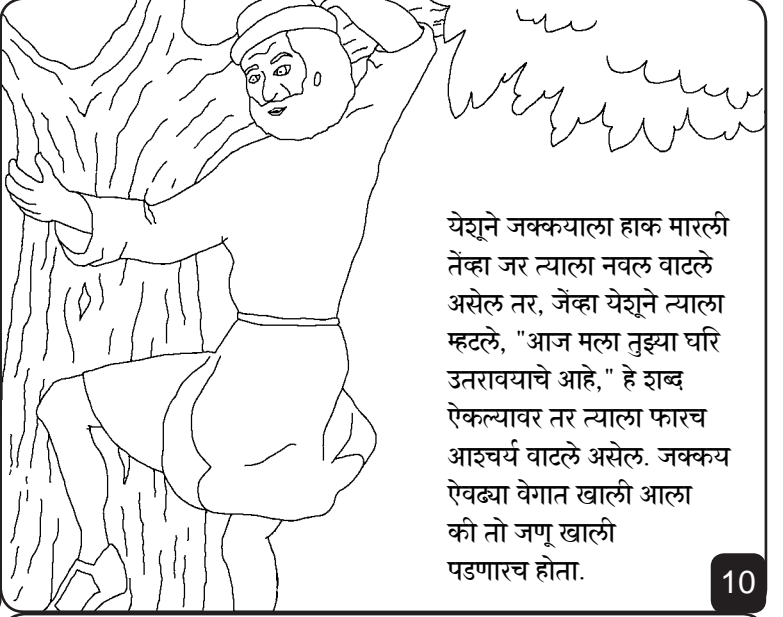 येशूने जक्कयाला हाक मारली
तेंव्हा जर त्याला नवल वाटले
असेल तर, जेंव्हा येशूने त्याला
म्हटले, "आज मला तुझ्या घरि
उतरावयाचे आहे," हे शब्द
ऐकल्यावर तर त्याला फारच
आश्चर्य वाटले असेल. जक्कय
ऐवढ्या वेगात खाली आला
की तो जणू खाली
पडणारच होता.
10